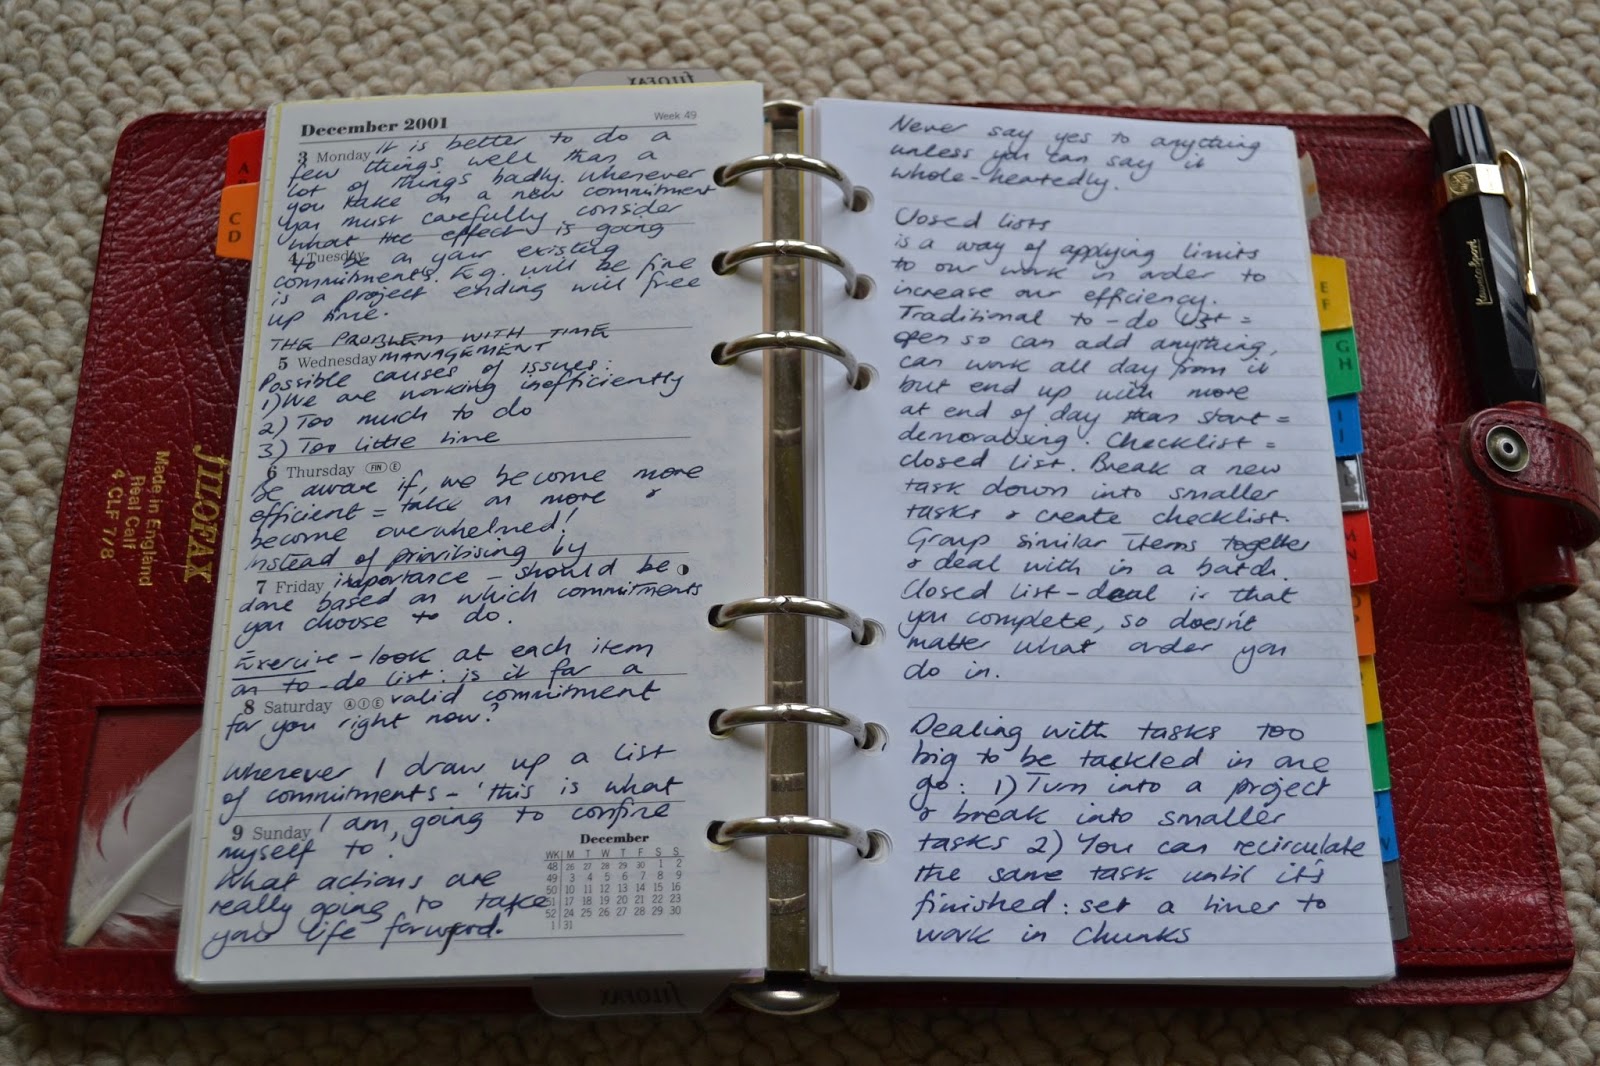 FILOFAX
December 2001 Week 49
3 Monday It is better to do a
few things well than a
lot of things badly. Whenever
you take on a new commitment
you must carefully consider
what the effect is going
4 Tuesday to be on your existing
commitments. E.g. will be fine
is a project ending will free
up time.
THE PROBLEM WITH TIME
5 Wednesday MANAGEMENT
Possible causes of issues:
1) We are working inefficiently
2) Too much to do
3) Too little time
6 Thursday FIN E
Be aware if, we become more
efficient = take on more &
become overwhelmed!
Instead of prioritising by
7 Friday importance - should be
done based on which commitments
you choose to do.
Exercise - look at each item
on to-do list: is it for a
8 Saturday A I E valid commitment
for you right now?
Whenever I draw up a list
of commitments - 'this is what
9 Sunday I am going to confine
myself to'.
What actions are
really going to take
your life forward.
December
WK M T W T F S S
48 26 27 28 29 30 1 2
49 3 4 5 6 7 8 9
50 10 11 12 13 14 15 16
51 17 18 19 20 21 22 23
52 24 25 26 27 28 29 30
1 31
Never say yes to anything
unless you can say it
whole-heartedly.
Closed lists
is a way of applying limits
to our work in order to
increase our efficiency.
Traditional to-do list =
open so can add anything,
can work all day from it
but end up with more
at end of day than start =
demoralising. Checklist =
closed list. Break a new
task down into smaller
tasks & create checklist.
Group similar items together
& deal with in a batch.
Closed list - deal is that
you complete, so doesn't
matter what order you
do in.
Dealing with tasks too
big to be tackled in one
go: 1) Turn into a project
& break into smaller
tasks 2) You can recirculate
the same task until it's
finished: set a timer to
work in chunks
A
C
D
E
F
G
H
I
J
M
N
O
P
W
fILOFAX
Made in England
Real Calf
4 CLF 7/8
Kaweco Sport
fILOFAX